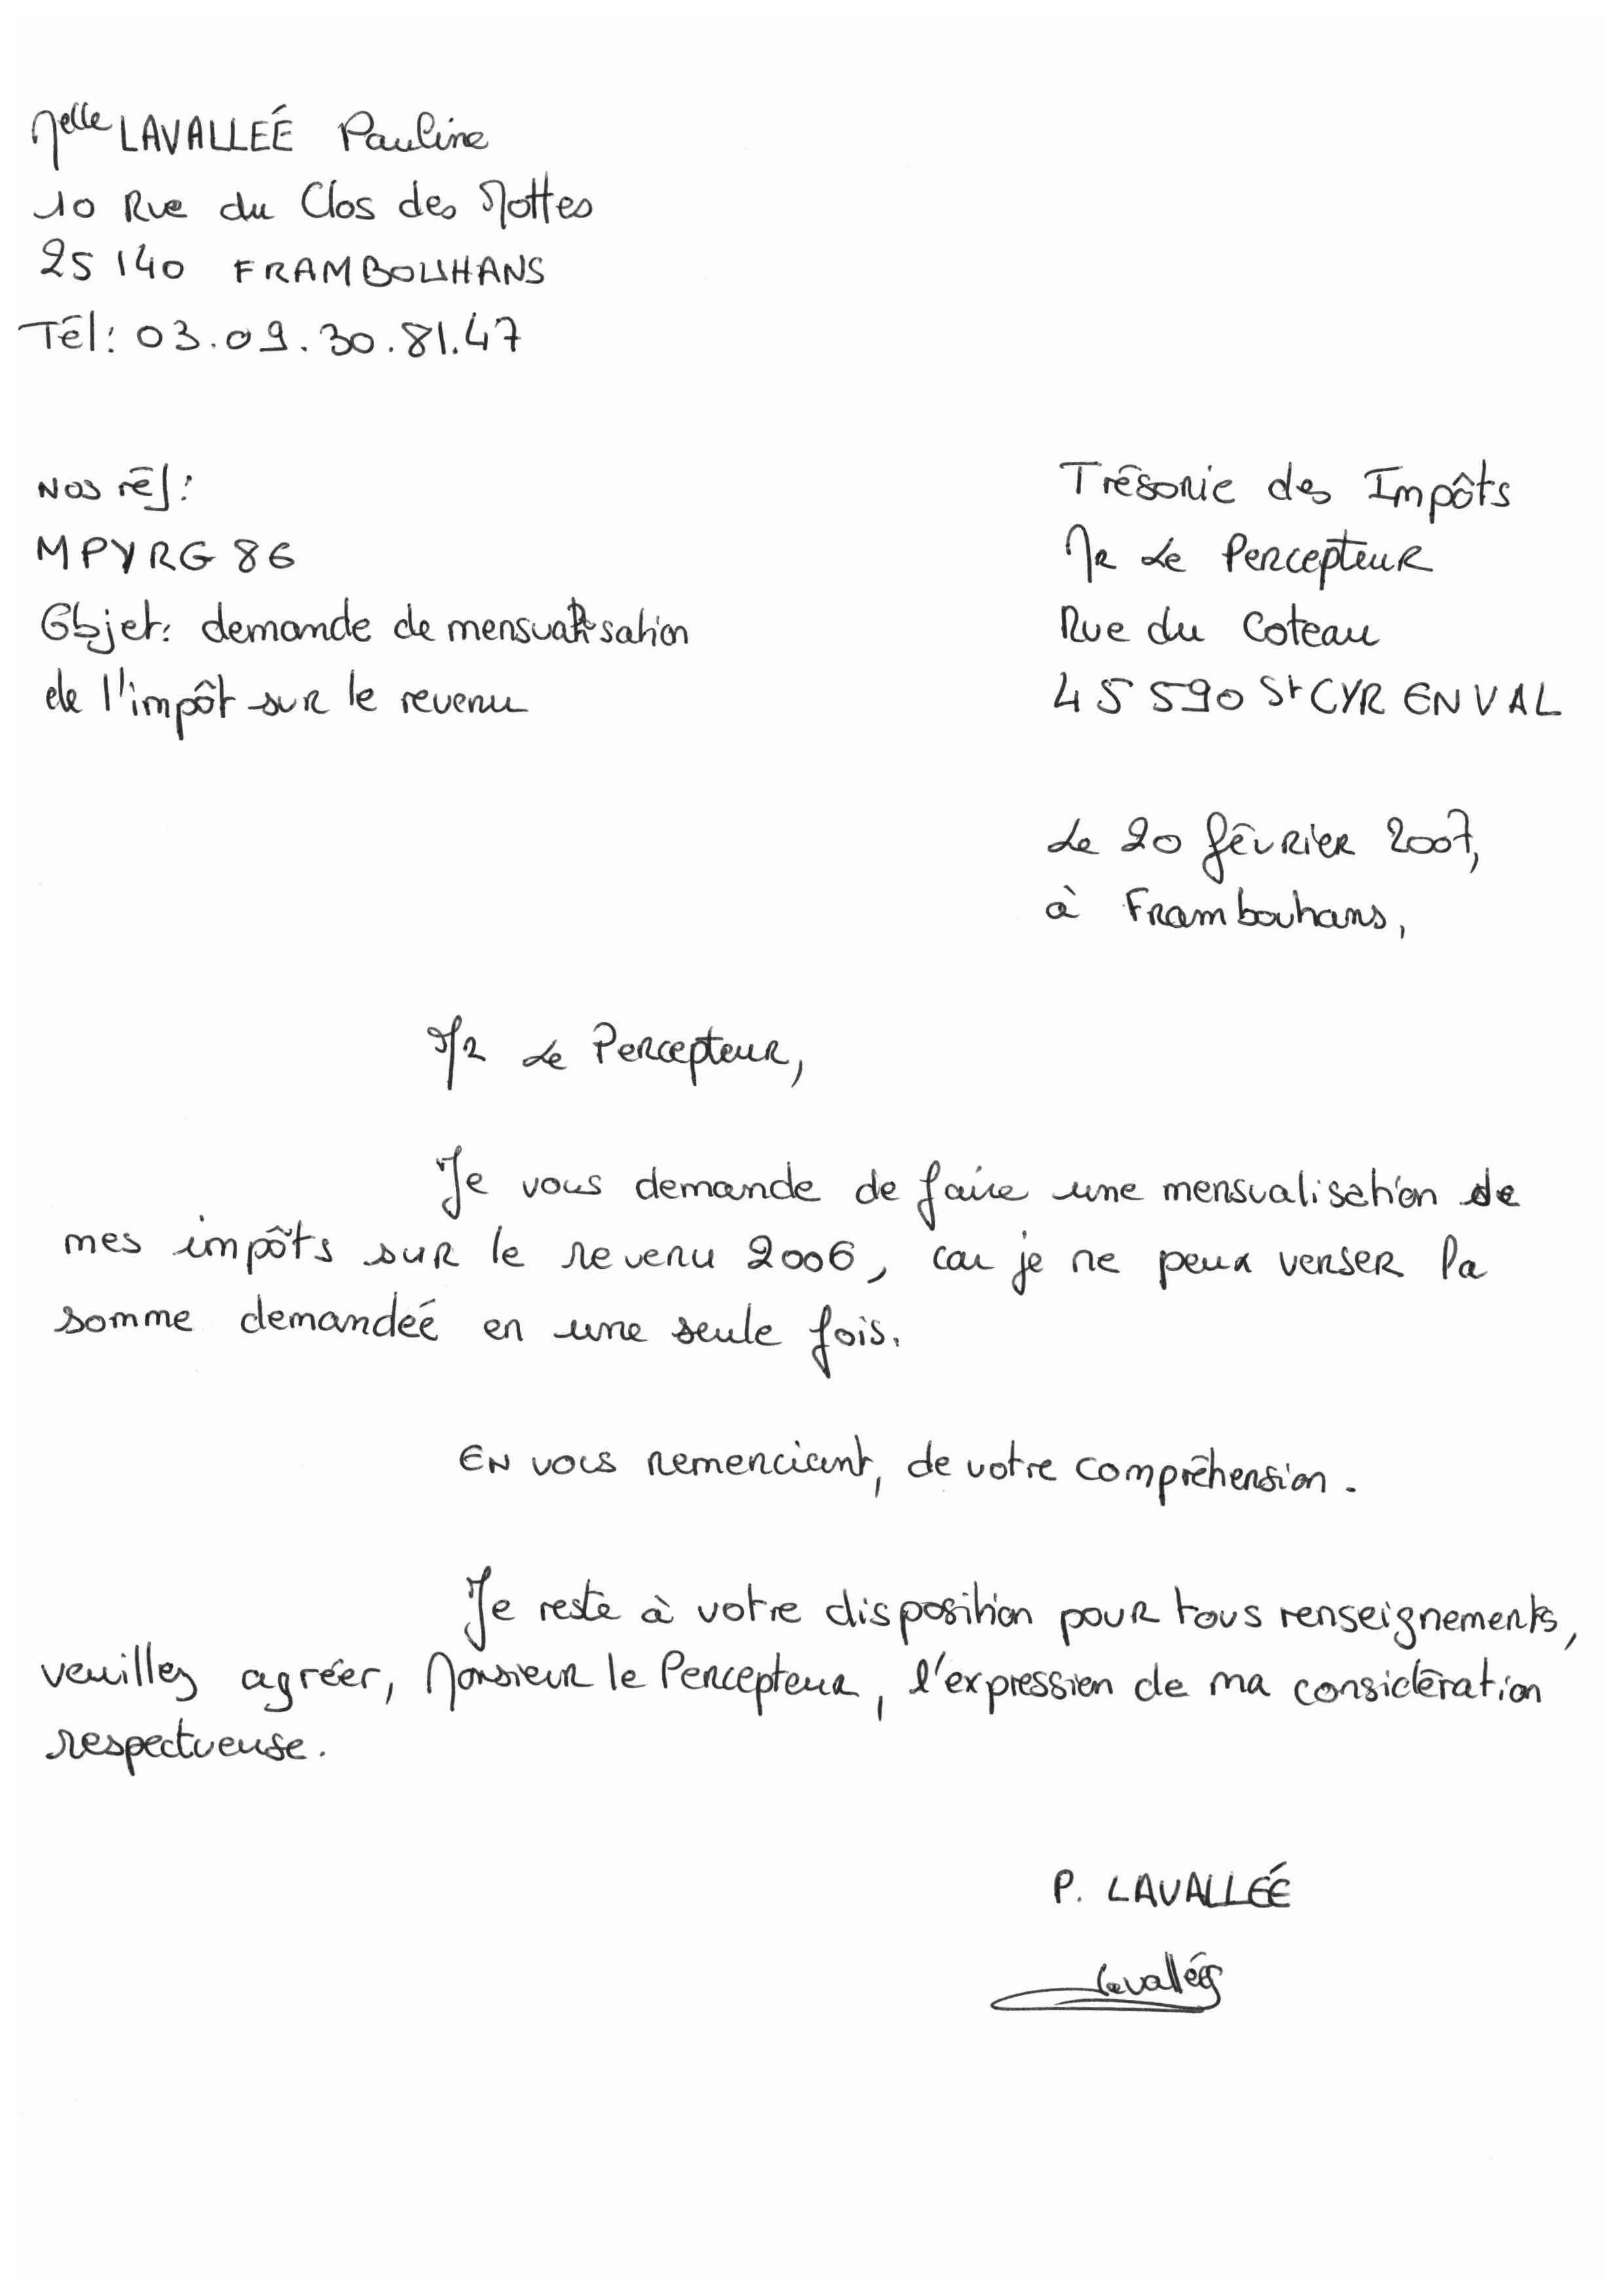 Melle LAVALLEÉ Pauline
10 Rue du Clos des Mottes
25 140 FRAMBOUHANS
Tél: 03.09.30.81.47
Nos réf:
MPYRG 86
Objet: demande de mensualisation
de l'impôt sur le revenu
Trésorie des Impôts
Mr Le Percepteur
Rue du Coteau
45 590 St CYR EN VAL
Le 20 février 2007,
à Frambouhans,
Mr Le Percepteur,
Je vous demande de faire une mensualisation de
mes impôts sur le revenu 2006, car je ne peux verser la
somme demandeé en une seule fois.
EN vous remerciant, de votre compréhension.
Je reste à votre disposition pour tous renseignements,
veuillez agréer, Monsieur le Percepteur, l'expression de ma considération
respectueuse.
P. LAVALLÉE
Lavallée